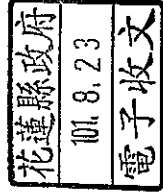 花蓮縣政府
101.8.23
電子收文